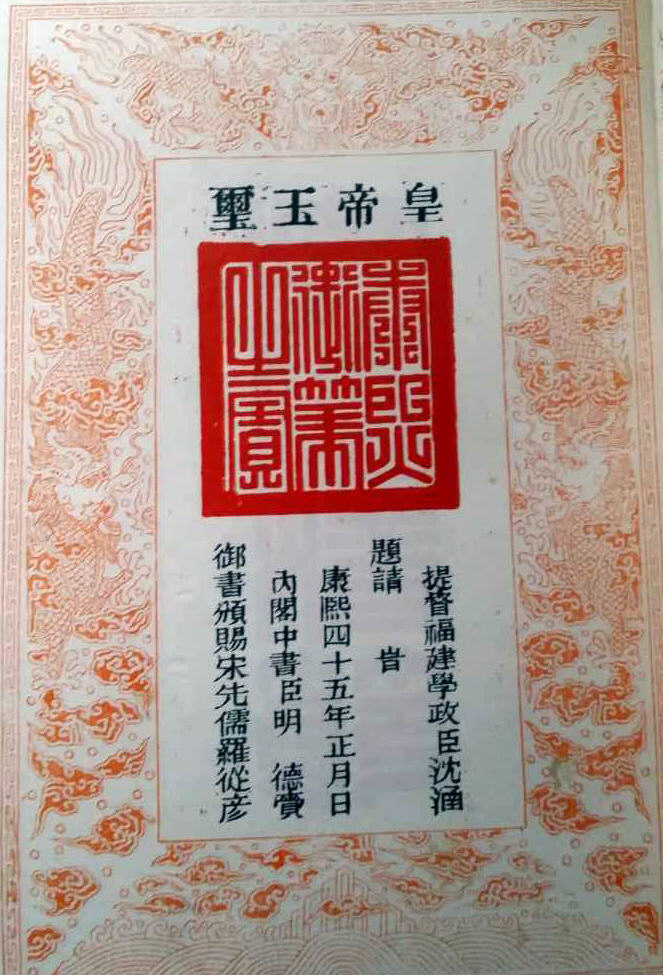 皇帝玉璽
康熙
御筆
之寶
提督福建學政臣沈涵
題請 旨
康熙四十五年正月日
內閣中書臣明 德賫
御書頒賜宋先儒羅從彥